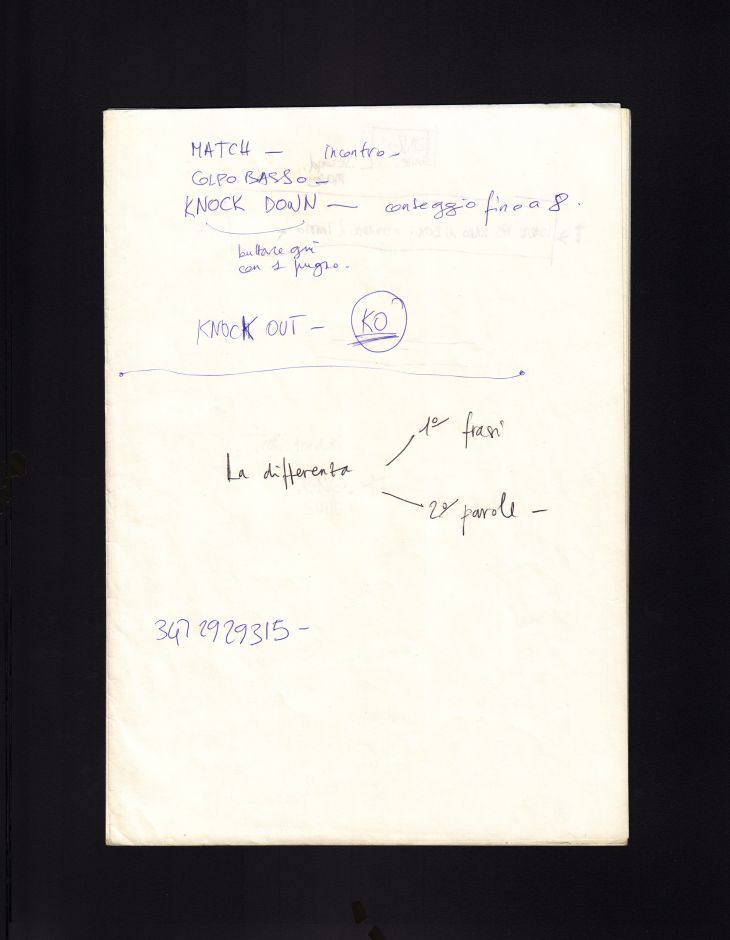 MATCH — incontro –
COLPO BASSO –
KNOCK DOWN — conteggio fino a 8.
buttare giù
con 1 pugno.
KNOCK OUT – KO
1º frasi
La differenza
2º parole –
347 2929315 –